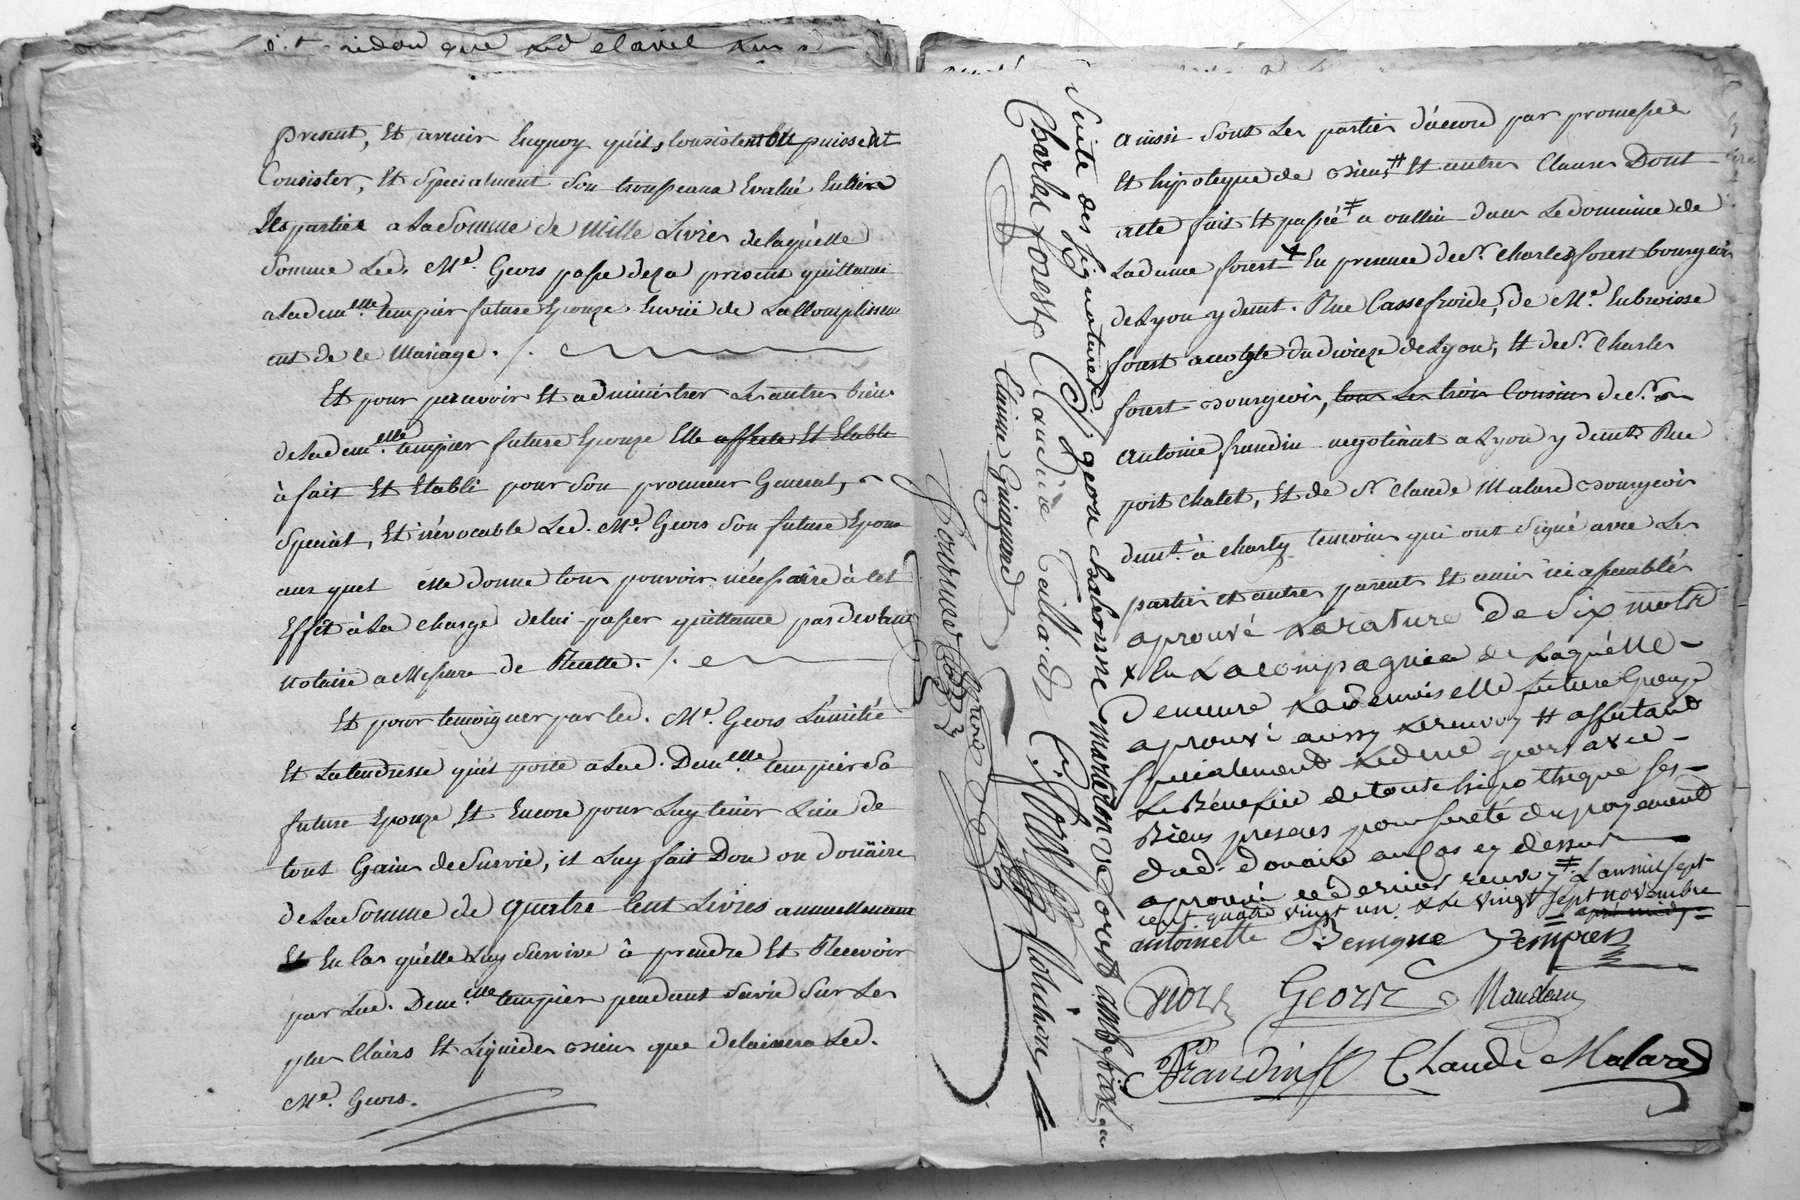 present, et avenir Enquoy qu'ils Consistent Et puissent
Consister, Et Specialment Son trousseaux Evalué Entre
Les parties a la Somme de Mille Livres delaquelle
Somme Led. Me. Geors passe deza present quittance
a lad demelle. tempier future Epouze Envüe de Laccomplissem
ent de ce Mariage. /.
Et pour percevoir Et administrer Les autres biens
de lad demelle. tempier future Epouze Elle affecte Et Etablit
à fait Et Etabli pour Son procureur General,
Special, Et irévocable Led. Me. Geors Son futur Epoux
auquel elle donne tous pouvoir nécessaire à cet
Effêt à la charge delui passer quittance pardevant
Notaire a Mesure de Recette. /.
Et pour temoigner par led. Me. Geors L'amitié
Et La tendresse qu'il porte a lad. Demelle. tempier Sa
future Epouze Et Encore pour Luy tenir Lieu de
tous Gains de Survie, il Luy fait Don ou Doüaire
de La Somme de quatre Cent Livres annuellement
Et En Cas qu'elle Luy Survive à prendre Et Recevoir
par Lad. Demelle. tempier pendant Savie Sur Les
plus Clairs Et Liquides Biens que delaissera Led.
Me. Geors.
Suite des Signatures
Charles forest Claudia Gaillard
Claine Guignard
ainsi Sont Les parties d'acord par promesse
Et hipoteque de Biens # Et autres Clauses Dont
acte fait Et passée ‡ a oullin dans Le domaine de
La dame forest + En presence de Sr. Charles forest bourgeois
de Lyon y demt. Rue Cassefroide, de Me. Enbroise
forest acolyte du dioceze de Lyon, Et de Sr. Charles
forest Bourgeois, tous Les trois Cousins de Sr.
Antoine frandin negotiant a Lyon y demt. Rue
port Chalet, Et de Sr Claude Malard Bourgeois
demt. à Charly temoins qui ont Signé avec Les
parties et autres parents Et amis icy assemblés
aprouvé La rature De Six mots
+ En La Compagnie de Laquelle
Demeure La demoiselle future Epouze
aprouvé aussy Le renvoy # affectant
Specialement Led me geors avec
Le Bénéfice de toute hipotheque Ses
Biens presens pour Sureté du payement
dud. Douaire au Cas cy dessus
aprouvé ce dernier renvoy ‡ L'an mil sept
cent quatre vingt un & Le vingt Sept novembre
après midy
antoinette Benigne Tempier
Geors Naudin
Frandin Claude Malard